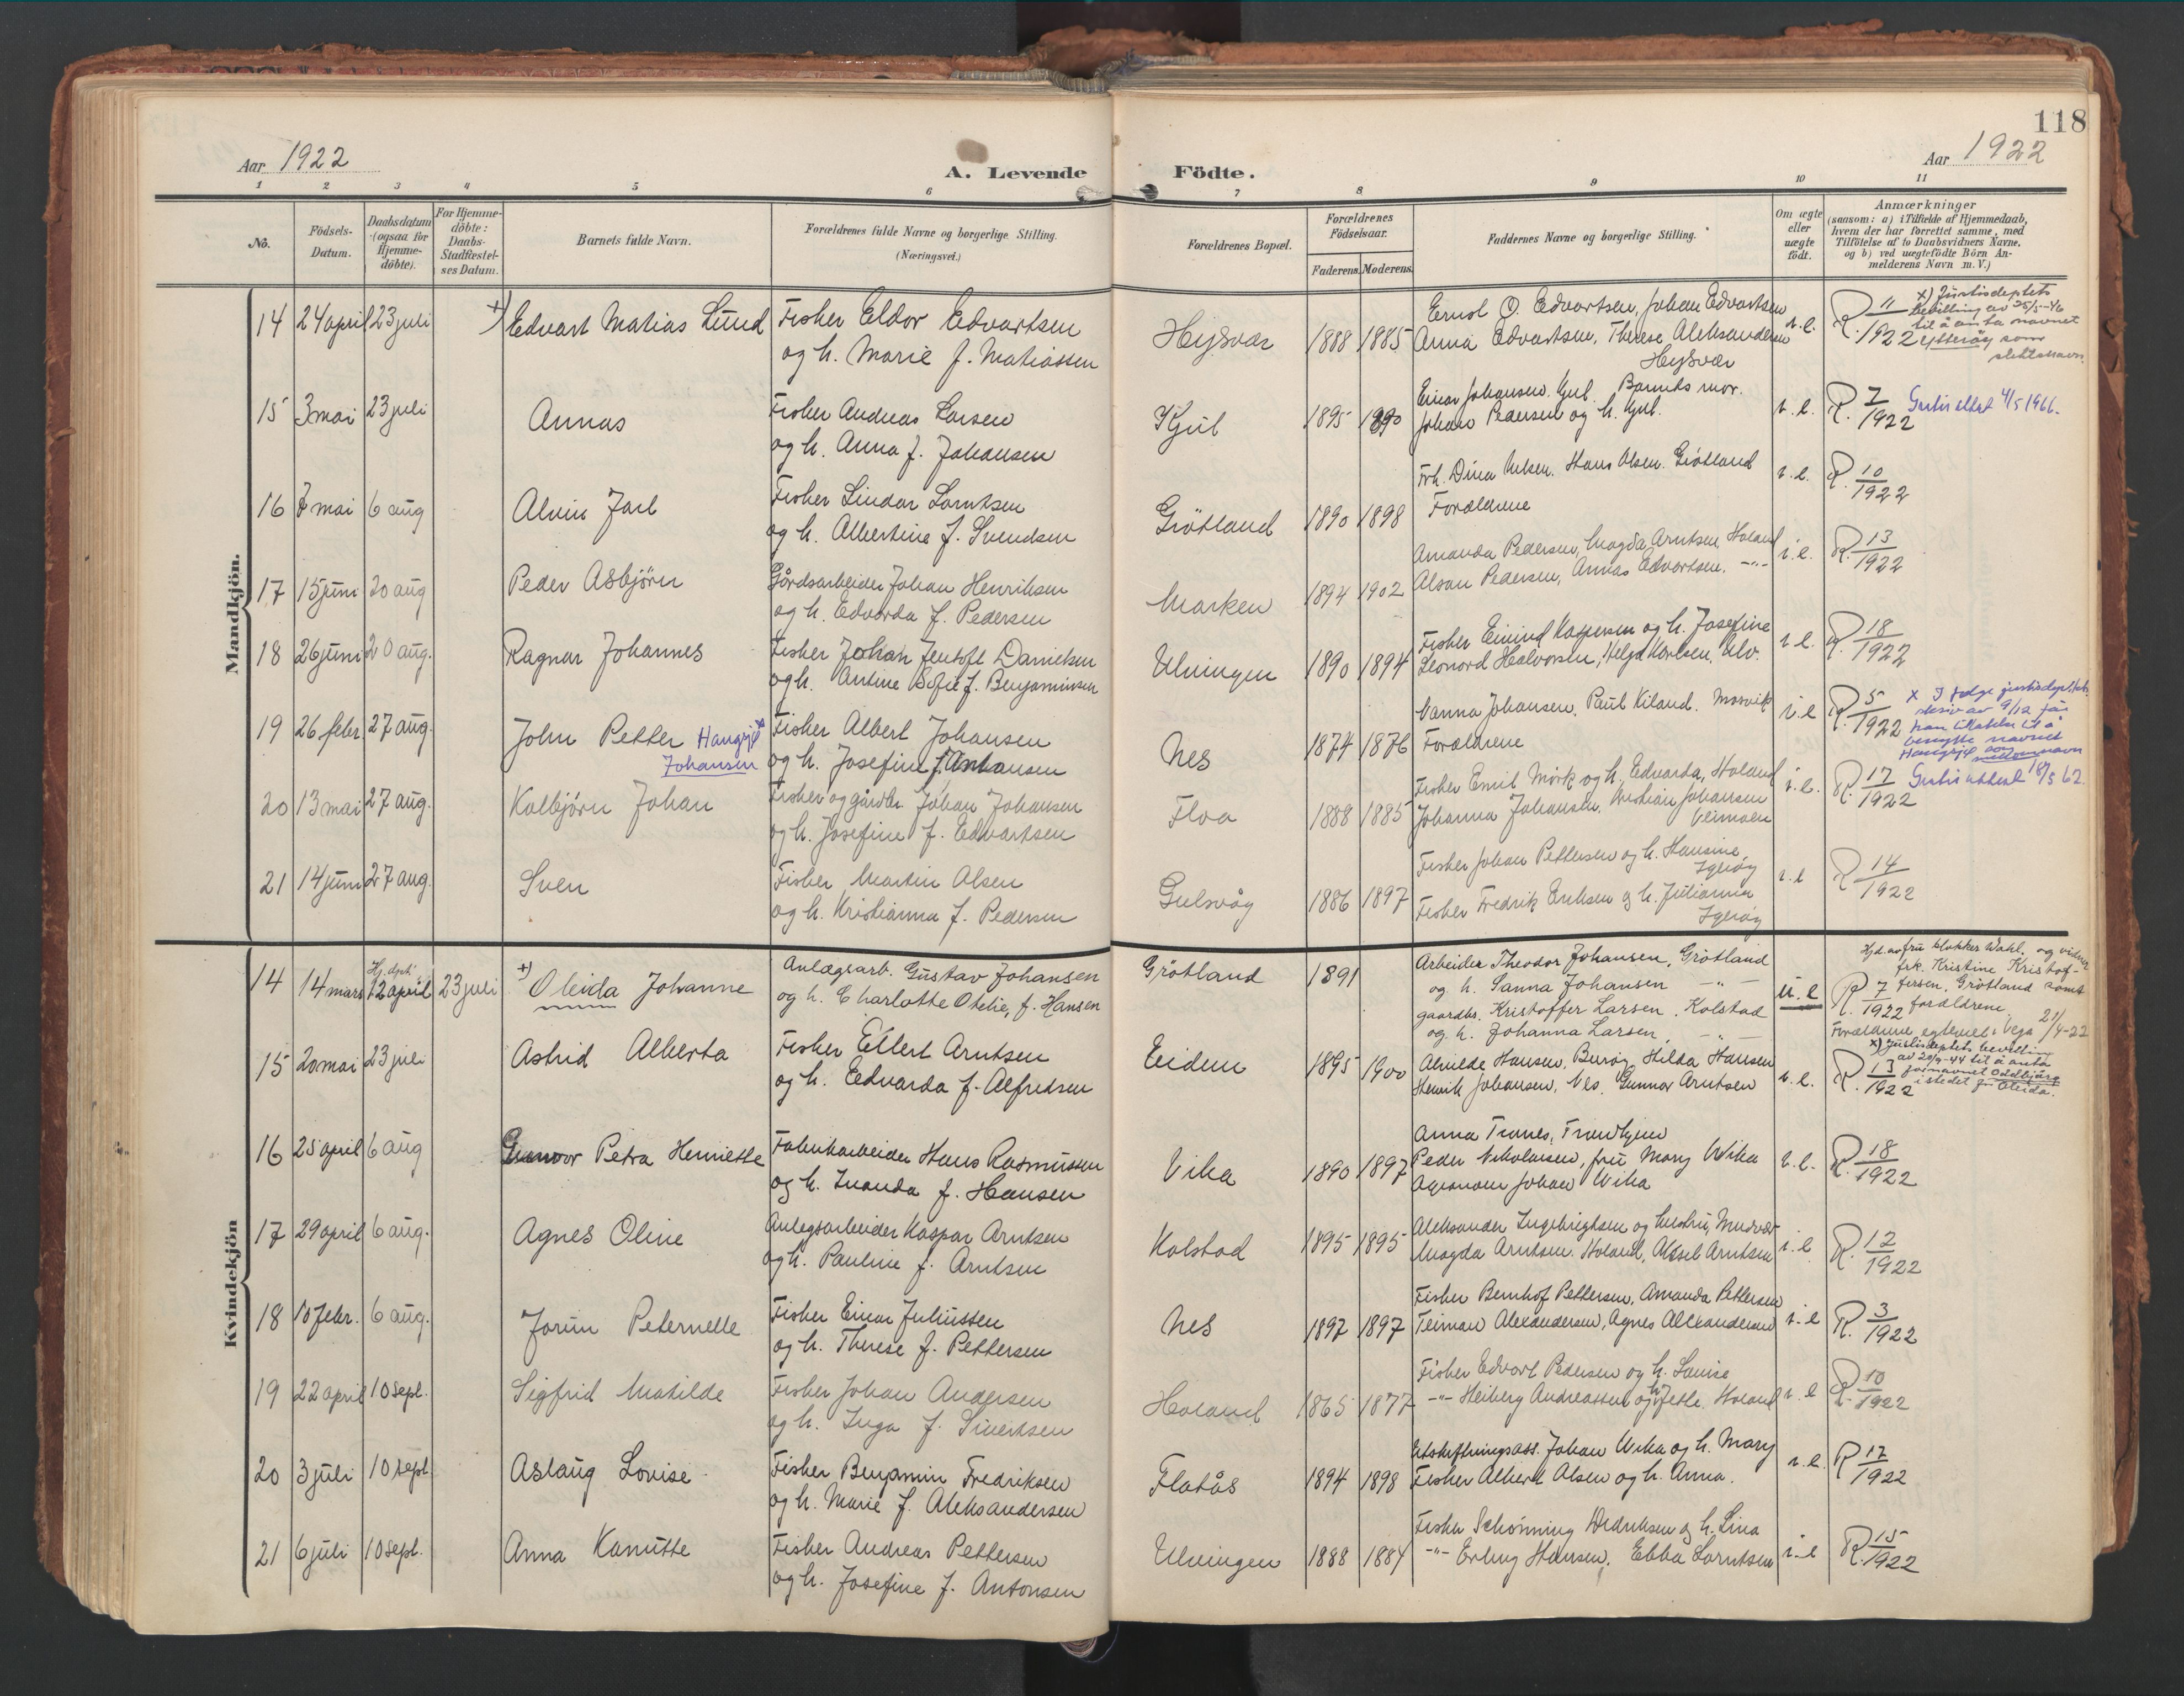 118
Aar 1922
A. Levende Födte.
Aar 1922
1 2 3 4 5 6 7 8 9 10 11
No.
Födsels-
Datum.
Daabsdatum
(ogsaa for
Hjemme-
döbte).
For Hjemme-
döbte:
Daabs-
Stadfæstel-
ses Datum.
Barnets fulde Navn.
Forældrenes fulde Navne og borgerlige Stilling.
(Næringsvei.)
Forældrenes Bopæl.
Forældrenes
Födselsaar.
Faderens. Moderens.
Faddernes Navne og borgerlige Stilling.
Om ægte
eller
uægte
födt.
Anmærkninger
(saasom: a) i Tilfælde af Hjemmedaab,
hvem der har forrettet samme, med
Tilföielse af to Daabsvidners Navne.
og b) ved uægtefödte Börn An-
melderens Navn m. V.)
Mandkjön.
14 24 april 23 juli +) Edvart Matias Lund
Fisker Eldor Edvartsen
og h. Marie f. Matiassen
Heysvær 1888 1885
Ernst O. Edvartsen, Johan Edvartsen
Anna Edvartsen, Therese Aleksandersen
Heysvær
i.e.
R. 11/1922
x) Justisdeptets
bevilling av 25/5-46
til å anta navnet
Ytterøy som
slektsnavn.
15 3 mai 23 juli Annas
Fisker Andreas Larsen
og h. Anna f. Johansen
Kjul 1895 1890
Einar Johansen. Kjul. Barnets mor.
Johan Pedersen og h. Kjul.
i.e. R. 7/1922 4/5 1966.
16 7 mai 6 aug Alvin Jarl
Fisker Lindor Lorntsen
og h. Albertine f. Svendsen
Grötland 1890 1898
Frk. Dina Nilsen. Hans Olsen. Grötland
Forældrene
i.e. R. 10/1922
17 15 juni 20 aug Peder Asbjörn
Gårdsarbeider Johan Henriksen
og h. Edvarda f. Pedersen
Marken 1894 1902
Amanda Pedersen, Magda Arntsen, Holand
Alson Pedersen, Annas Edvartsen. -"-
i.e. R. 13/1922
18 26 juni 20 aug. Ragnar Johannes
Fisker Johan Jentoft Danielsen
og h. Antine Sofie f. Benjaminsen
Ulvingen 1890 1894
Fisker Eivind Kaspersen og h. Josefine
Leonord Halvorsen, Helga Karlsen, Ulv.
i.e. R. 18/1922
19 26 febr 27 aug. John Petter Haugrje x
Johansen
Fisker Albert Johansen
og h. Josefine f. Antonsen
Nes 1874 1876
Nanna Johansen. Paul Kiland. Mosvik
Forældrene
i.e R. 5/1922
20 13 mai 27 aug. Kolbjørn Johan
Fisker og gårdbr. Johan Johansen
og h. Josefine f. Edvartsen
Floa 1888 1885
Fisker Emil Mörk og h. Edvarda, Holand
Johanna Johansen. Kristian Johansen
i.e. R. 17/1922 18/5 62
21 14 juni 27 aug. Sven
Fisker Martin Olsen
og h. Kristianna f. Pedersen
Gulsvåg 1886 1897
Fisker Johan Pettersen og h. Hansine
Igerøy
Fisker Fredrik Eriksen og h. Julianna
Igerøy
i.e R. 14/1922
Kvindekjön
14 14 mars Hj. døpt 12 april 23 juli +) Oleida Johanne
Anlægsarb. Gustav Johansen
og h. Charlotte Otelie, f. Hansen
Grötland 1891
Arbeider Theodor Johansen, Grötland
og h. Sanna Johansen -"-
gaardbr. Kristoffer Larsen, Kolstad
og h. Johanna Larsen, -"-
u.e
R. 7/1922
Hjd. av fru klokker Wahl. og vidner
frk. Kristine Kristof-
fersen, Grötland samt
forældrene.
Forældrene egteviet i Vega 21/4-22
x) Justisdeptets bevilling
av 20/9-44 til å anta
fornavnet Oddbjørg
istedet for Oleida.
15 20 mai 23 juli Astrid Alberta
Fisker Ellert Arntsen
og h. Edvarda f. Alfredsen
Eidem 1895 1900
Alvilde Hansen, Burøy, Hilda Hansen
Henrik Johansen, Nes. Gunnar Arntsen
i.e. R. 13/1922
16 25 april 6 aug Gunvor Petra Henriette
Fabrikarbeider Hans Rasmussen
og h. Inanda f. Hansen
Vika 1890 1897
Anna Tranes, Trondhjem
Peder Nikolaisen, fru Mary Wika
Agronom Johan Wika
i.e. R. 18/1922
17 29 april 6 aug. Agnes Oline
Anlegsarbeider Kaspar Arntsen
og h. Pauline f. Arntsen
Kolstad 1895 1895
Aleksander Ingebrigtsen og hustru, Muddvær
Magda Arntsen. Holand, Aksel Arntsen
i.e R. 12/1922
18 10 febr. 6 aug. Jorun Peternelle
Fisker Einar Juliussen
og h. Therese f. Pettersen
Nes 1897 1897
Fisker Bernhof Pettersen, Amanda Pettersen
Teiman Alexandersen, Agnes Alexandersen
i.e R. 3/1922
19 22 april 10 sept. Sigfrid Matilde
Fisker Johan Andersen
og h. Inga f. Sivertsen
Holand 1865 1877
Fisker Edvart Pedersen og h. Lovise
-"- Heiberg Andreassen og h. Jette. Holand
i.e R. 10/1922
20 3 juli 10 sept Aslaug Lovise
Fisker Benjamin Fredriksen
og h. Marie f. Aleksandersen
Flatås 1894 1898
Utskiftningsass. Johan Wika og h. Mary
Fisker Albert Olsen og h. Anna.
i.e. R. 17/1922
21 6 juli 10 sept. Anna Kanutte
Fisker Andreas Pettersen
og h. Josefine f. Antonsen
Ulvingen 1888 1884
Fisker Schönning Didriksen og h. Lina
-"- Erling Hansen, Ebba Lorntsen
i.e R. 15/1922